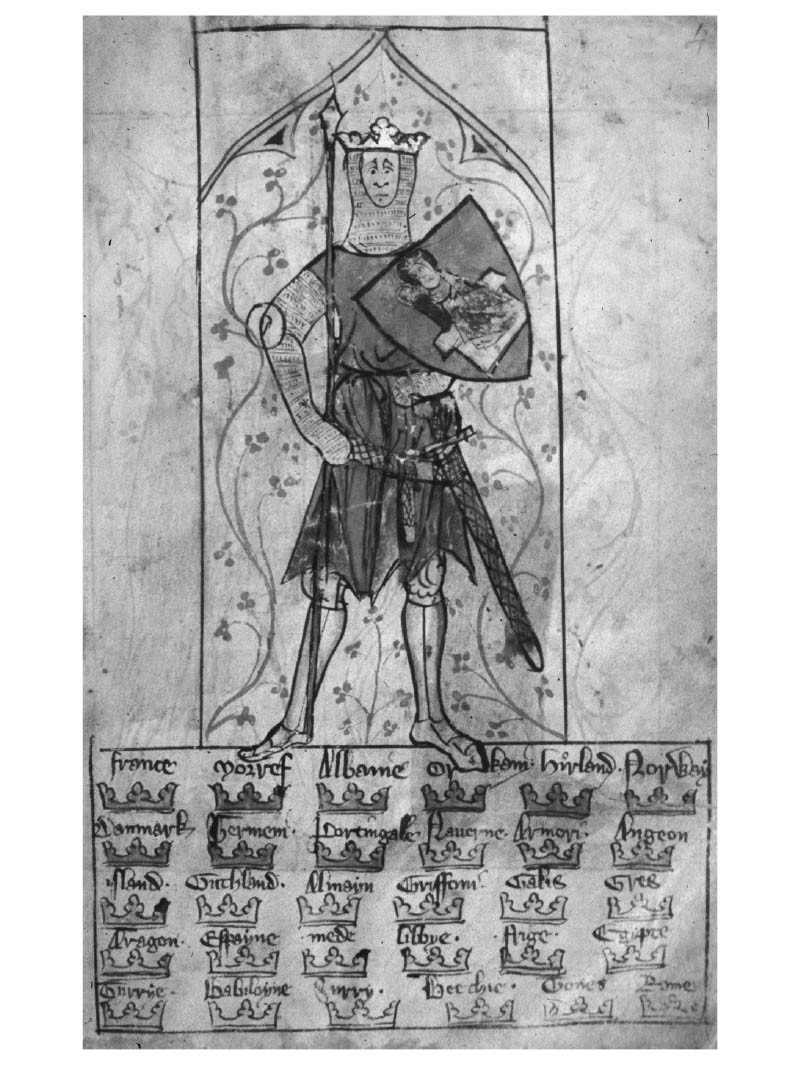 4
france norref Albanie Or kani hirland Norway
Danmark Germeni Portingale Nauerne Armori Angeon
island Guthland Almayn Griffoni Galis Gres
Aragon Espayne mede libye Frige Egipte
Surrye Babiloyne Turry Rome